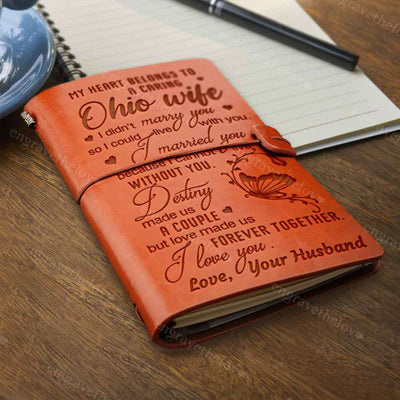 MY HEART BELONGS TO
A CARING
Ohio wife
I didn't marry you
so I could live with you,
I married you
because I cannot
WITHOUT YOU
Destiny
made us
A COUPLE
but love made us
FOREVER TOGETHER.
I love you
Love, Your Husband
engravethelove